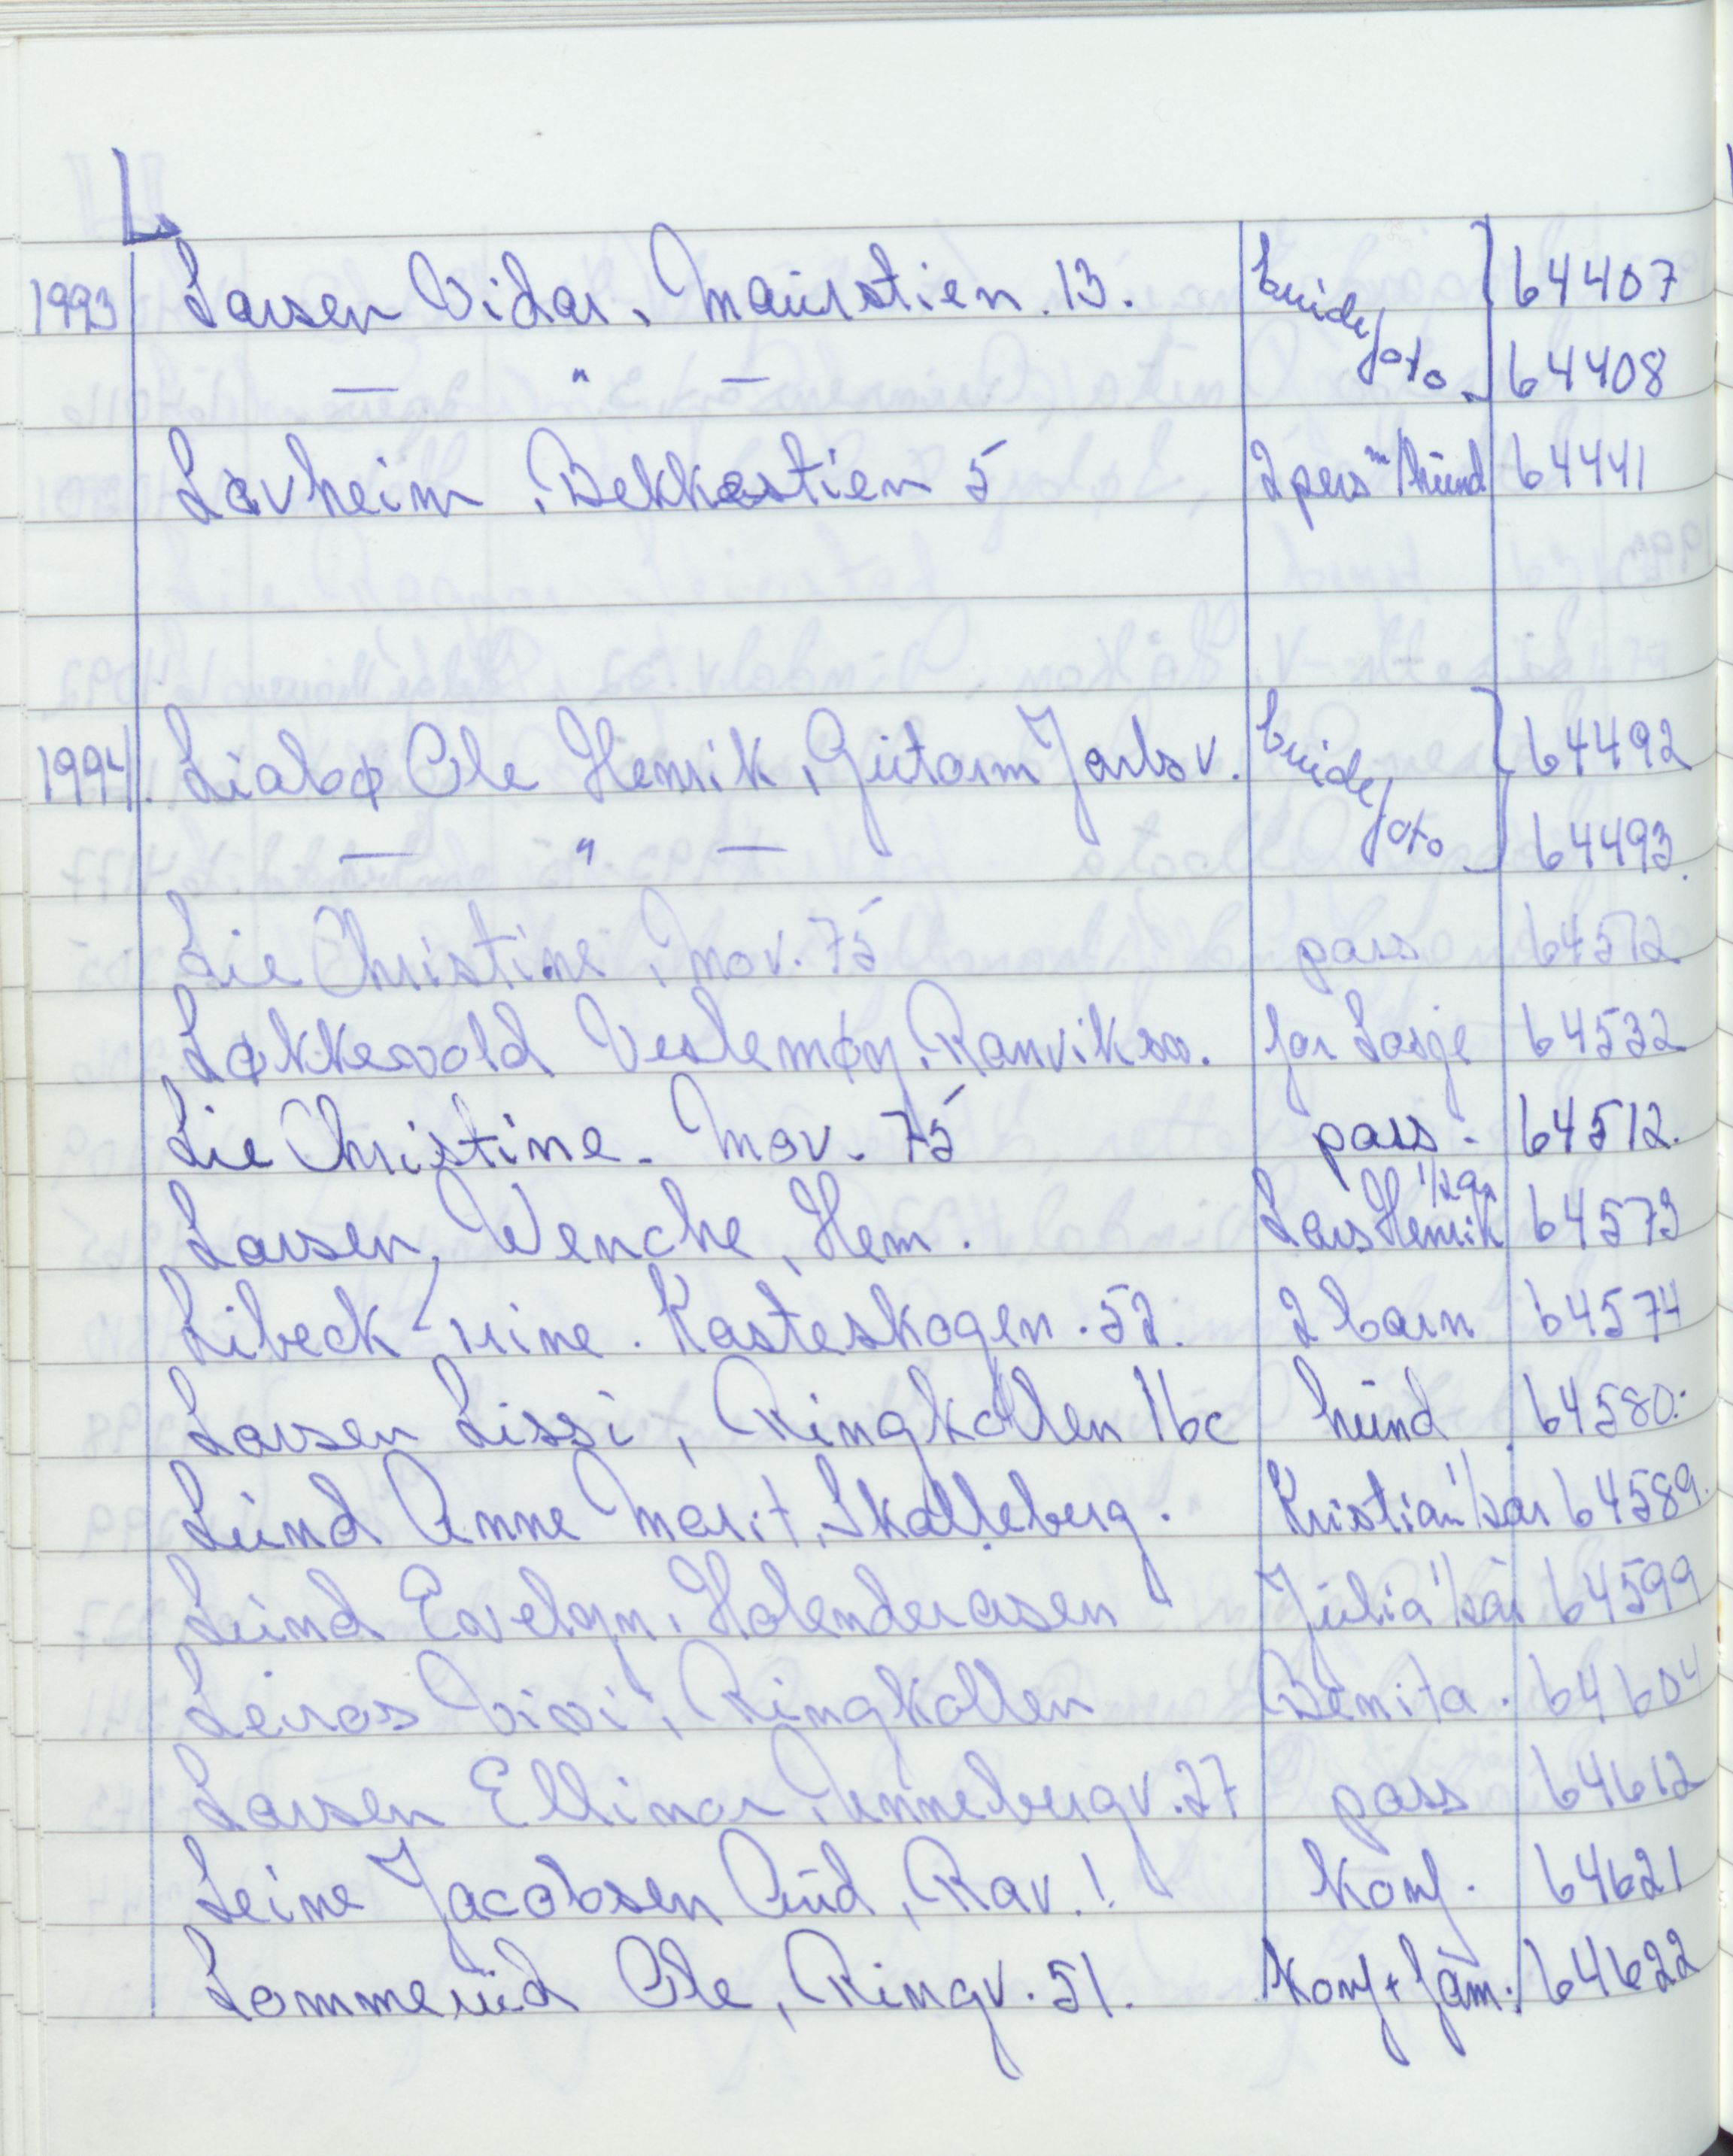 L
1993 Larsen Vidar, Maurstien. 13. brudefoto 64407
— " — 64408
Lavheim, Bekkastien 5 2 pers m/hund 64441
1994. Liabø Ole Henrik, Gutorm Jarlsv. brudefoto 64492
— " — 64493.
Lie Christine, Mov. 75 pass 64512
Løkkevold Veslemøy, Ranvikso. for Lasje 64532
Lie Christine - Mov. 75 pass. 64512.
Larsen, Wenche, Hem. Lars Henrik 1/2 år 64573
Libeck - rine. Kasteskogen. 52. 2 barn 64574
Larsen Lissi, Ringkollen 16c hund 64580.
Lund Anne Marit, Skalleberg. Kristian 1/2 år 64589.
Lund Evelyn, Holenderåsen Julia 1/2 år 64599
Leiros Vivi, Ringkollen Benita. 64604
Larsen Ellinor, Unnebergv. 27 pass 64612
Leine Jacobsen Aud, Rav. ! Konf. 64621
Lommerud Ole, Ringv. 51. Konf + fam. 64622